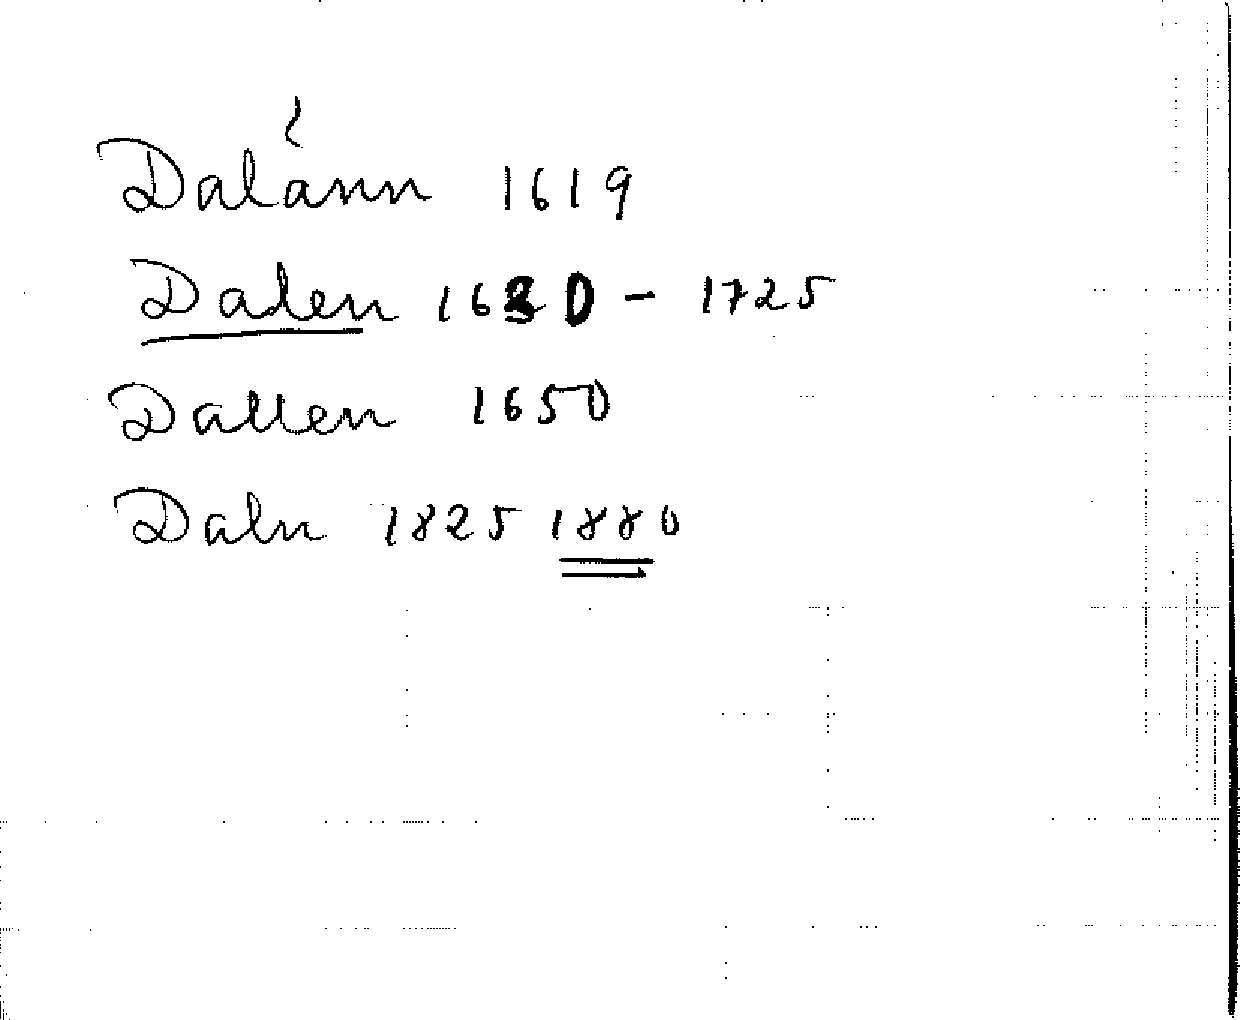 Dalánn 1619
Dalen 1680 - 1725
Dallen 1650
Daln 1825 1880